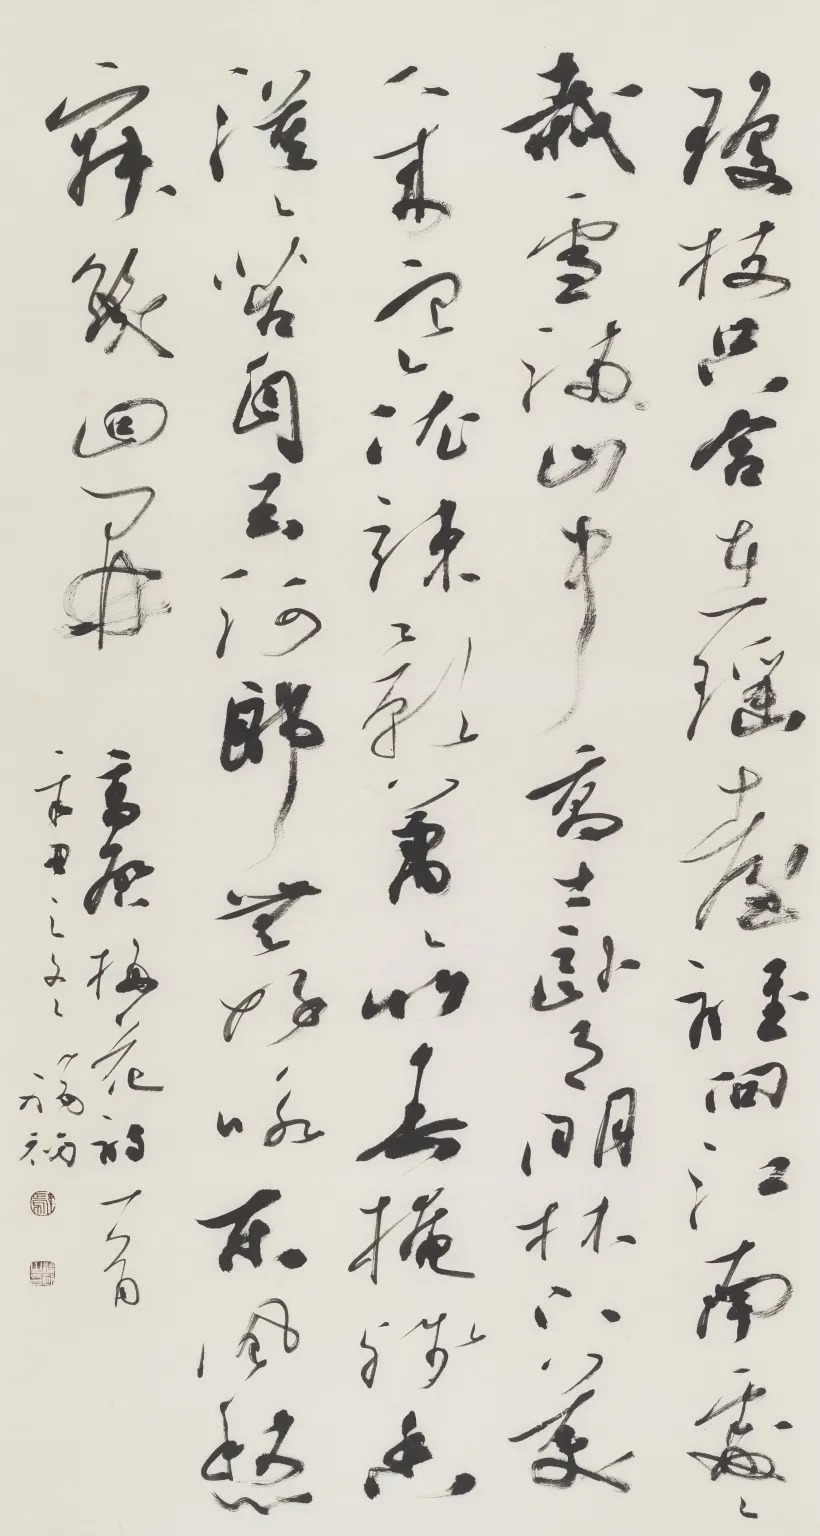 瓊枝只合在瑤臺誰向江南處々
栽雪滿山中高士臥月明林下美
人来寒依疎影蕭々竹春掩殘香
漠々苔自去何郎無好咏東風愁
寂幾回開
高啟梅花詩一首
辛丑之冬